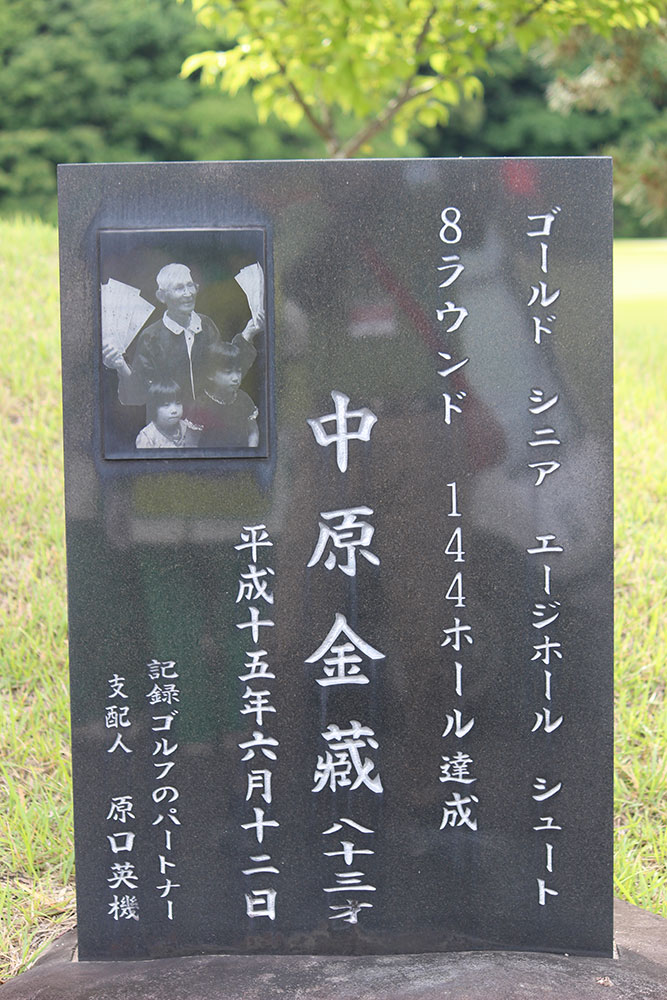 ゴールド シニア エージホール シュート
8ラウンド 144ホール達成
中原金藏 八十三才
平成十五年六月十二日
記録ゴルフのパートナー
支配人 原口英機